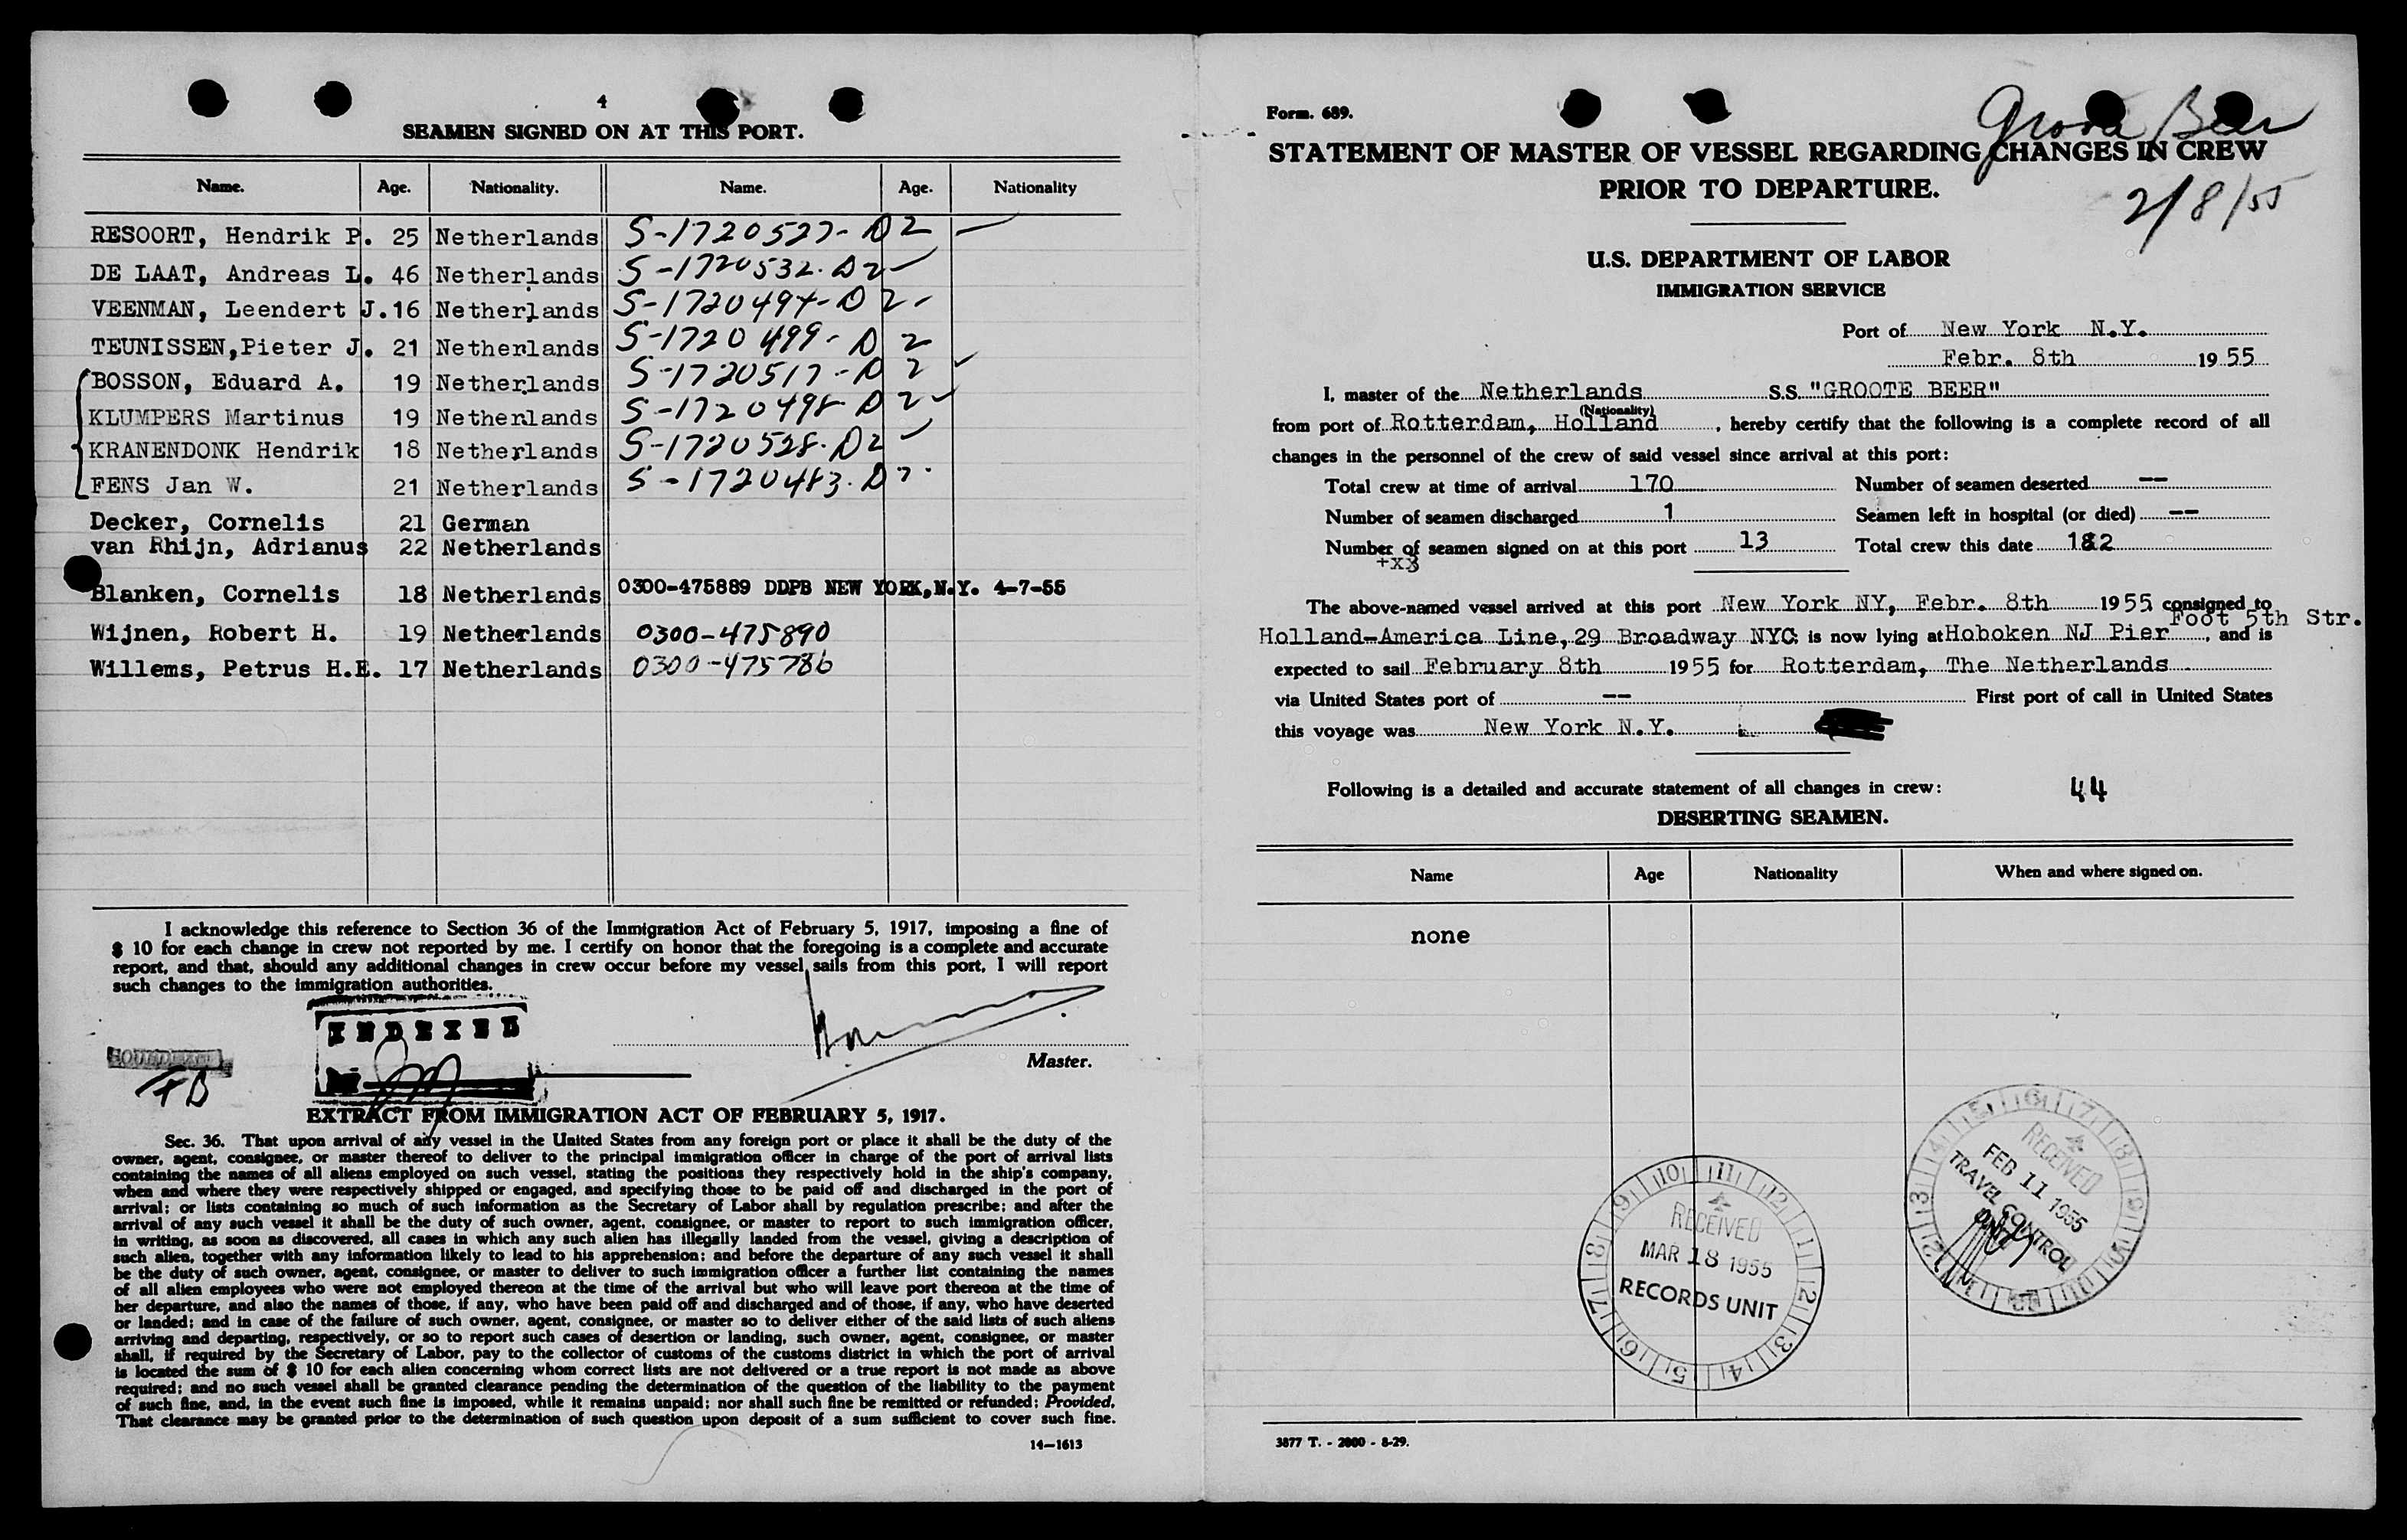 4
SEAMEN SIGNED ON AT THIS PORT.
Name. Age. Nationality. Name. Age. Nationality
RESOORT, Hendrik P. 25 Netherlands S-1720527-D2
DE LAAT, Andreas L. 46 Netherlands S-1720532-D2
VEENMAN, Leendert J. 16 Netherlands S-1720494-D2
TEUNISSEN, Pieter J. 21 Netherlands S-1720499-D2
BOSSON, Eduard A. 19 Netherlands S-1720517-D2
KLUMPERS Martinus 19 Netherlands S-1720498-D2
KRANENDONK Hendrik 18 Netherlands S-1720528-D2
FENS Jan W. 21 Netherlands S-1720483-D2
Decker, Cornelis 21 German
van Rhijn, Adrianus 22 Netherlands
Blanken, Cornelis 18 Netherlands 0300-475889 DDPB NEW YORK, N.Y. 4-7-55
Wijnen, Robert H. 19 Netherlands 0300-475890
Willems, Petrus H.E. 17 Netherlands 0300-475786
I acknowledge this reference to Section 36 of the Immigration Act of February 5, 1917, imposing a fine of
$ 10 for each change in crew not reported by me. I certify on honor that the foregoing is a complete and accurate
report, and that, should any additional changes in crew occur before my vessel sails from this port, I will report
such changes to the immigration authorities.
INDEXED
FB
Master.
EXTRACT FROM IMMIGRATION ACT OF FEBRUARY 5, 1917.
Sec. 36. That upon arrival of any vessel in the United States from any foreign port or place it shall be the duty of the
owner, agent, consignee, or master thereof to deliver to the principal immigration officer in charge of the port of arrival lists
containing the names of all aliens employed on such vessel, stating the positions they respectively hold in the ship's company,
when and where they were respectively shipped or engaged, and specifying those to be paid off and discharged in the port of
arrival; or lists containing so much of such information as the Secretary of Labor shall by regulation prescribe; and after the
arrival of any such vessel it shall be the duty of such owner, agent, consignee, or master to report to such immigration officer,
in writing, as soon as discovered, all cases in which any such alien has illegally landed from the vessel, giving a description of
such alien, together with any information likely to lead to his apprehension; and before the departure of any such vessel it shall
be the duty of such owner, agent, consignee, or master to deliver to such immigration officer a further list containing the names
of all alien employees who were not employed thereon at the time of the arrival but who will leave port thereon at the time of
her departure, and also the names of those, if any, who have been paid off and discharged and of those, if any, who have deserted
or landed; and in case of the failure of such owner, agent, consignee, or master so to deliver either of the said lists of such aliens
arriving and departing, respectively, or so to report such cases of desertion or landing, such owner, agent, consignee, or master
shall, if required by the Secretary of Labor, pay to the collector of customs of the customs district in which the port of arrival
is located the sum of $ 10 for each alien concerning whom correct lists are not delivered or a true report is not made as above
required; and no such vessel shall be granted clearance pending the determination of the question of the liability to the payment
of such fine, and, in the event such fine is imposed, while it remains unpaid; nor shall such fine be remitted or refunded; Provided,
That clearance may be granted prior to the determination of such question upon deposit of a sum sufficient to cover such fine.
14—1613
Form. 689.
Groote Beer
STATEMENT OF MASTER OF VESSEL REGARDING CHANGES IN CREW
PRIOR TO DEPARTURE.
2/8/55
U.S. DEPARTMENT OF LABOR
IMMIGRATION SERVICE
Port of New York N.Y.
Febr. 8th 1955
I, master of the Netherlands S.S. "GROOTE BEER"
(Nationality)
from port of Rotterdam, Holland, hereby certify that the following is a complete record of all
changes in the personnel of the crew of said vessel since arrival at this port:
Total crew at time of arrival 170 Number of seamen deserted --
Number of seamen discharged 1 Seamen left in hospital (or died) --
Number of seamen signed on at this port 13 Total crew this date 182
The above-named vessel arrived at this port New York NY, Febr. 8th 1955 consigned to
Foot 5th Str.
Holland-America Line, 29 Broadway NYC is now lying at Hoboken NJ Pier, and is
expected to sail February 8th 1955 for Rotterdam, The Netherlands
via United States port of -- First port of call in United States
this voyage was New York N.Y.
Following is a detailed and accurate statement of all changes in crew: 44
DESERTING SEAMEN.
Name Age Nationality When and where signed on.
none
RECEIVED
FEB 11 1955
TRAVEL CONTROL
RECEIVED
MAR 18 1955
RECORDS UNIT
3877 T. - 2000 - 8-29.